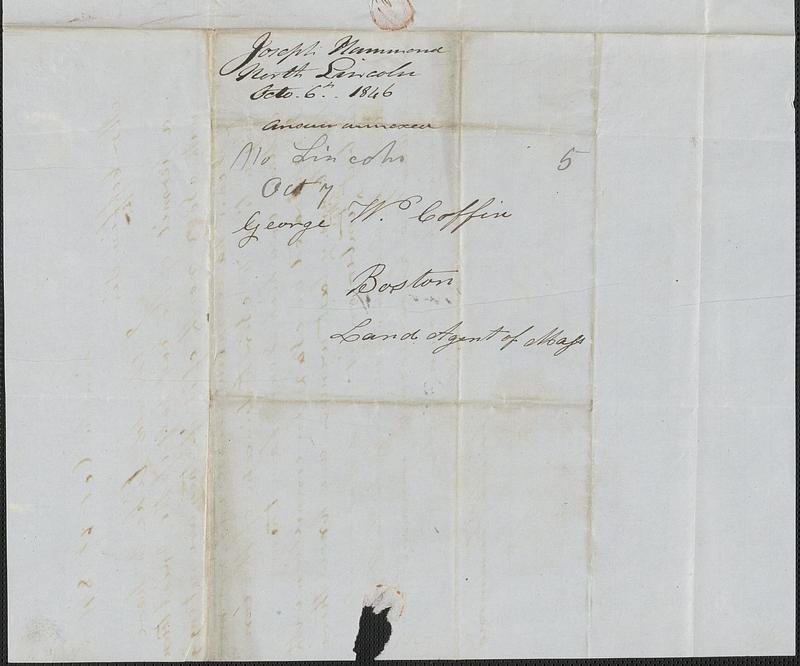 Joseph Hammond
North Lincoln
Octo. 6th. 1846
answer annexed
No Lincoln 5
Oct 7
George W. Coffin
Boston
Land Agent of Mass